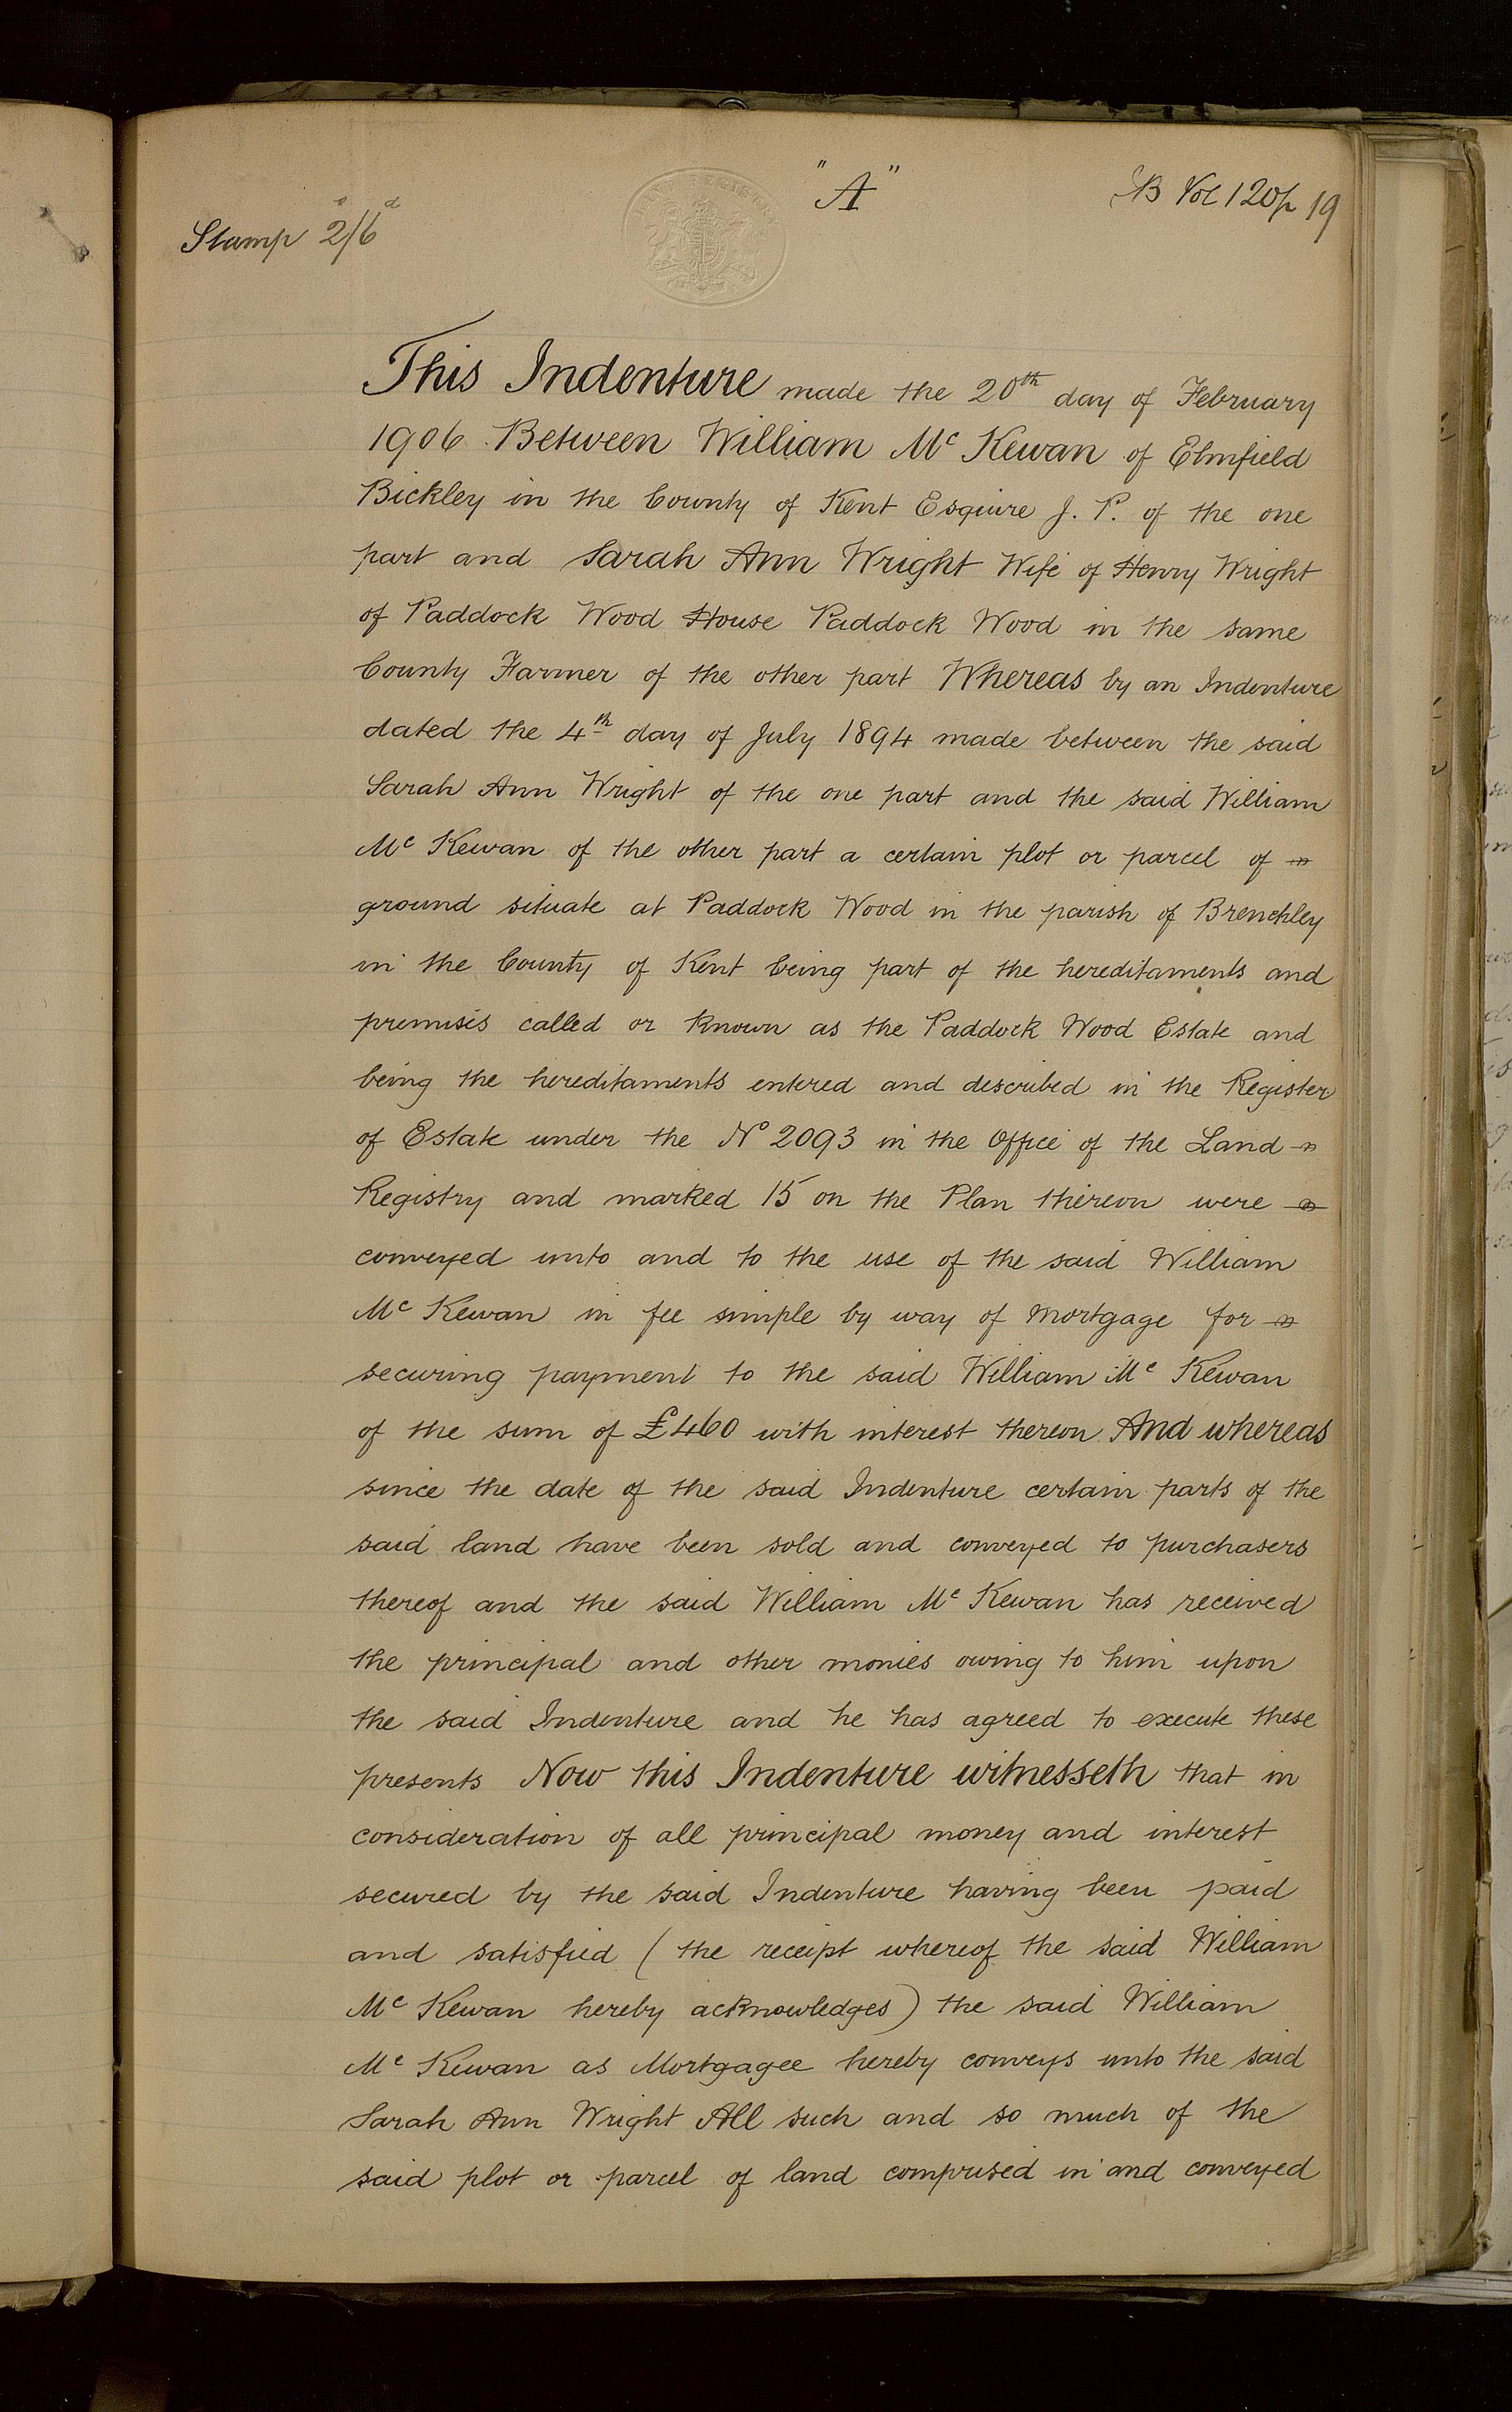 "A"
B Vol 120 p 19
Stamp 2s/6d
This Indenture made the 20th day of February
1906 Between William Mc Kewan of Elmfield
Bickley in the County of Kent Esquire J. P. of the one
part and Sarah Ann Wright Wife of Henry Wright
of Paddock Wood House Paddock Wood in the same
County Farmer of the other part Whereas by an Indenture
dated the 4th day of July 1894 made between the said
Sarah Ann Wright of the one part and the said William
Mc Kewan of the other part a certain plot or parcel of
ground situate at Paddock Wood in the parish of Brenchley
in the County of Kent being part of the hereditaments and
premises called or known as the Paddock Wood Estate and
being the hereditaments entered and described in the Register
of Estate under the No 2093 in the Office of the Land
Registry and marked 15 on the Plan thereon were
conveyed unto and to the use of the said William
Mc Kewan in fee simple by way of mortgage for
securing payment to the said William Mc Kewan
of the sum of £460 with interest thereon And whereas
since the date of the said Indenture certain parts of the
said land have been sold and conveyed to purchasers
thereof and the said William Mc Kewan has received
the principal and other monies owing to him upon
the said Indenture and he has agreed to execute these
presents Now this Indenture witnesseth that in
consideration of all principal money and interest
secured by the said Indenture having been paid
and satisfied (the receipt whereof the said William
Mc Kewan hereby acknowledges) the said William
Mc Kewan as Mortgagee hereby conveys unto the said
Sarah Ann Wright All such and so much of the
said plot or parcel of land comprised in and conveyed